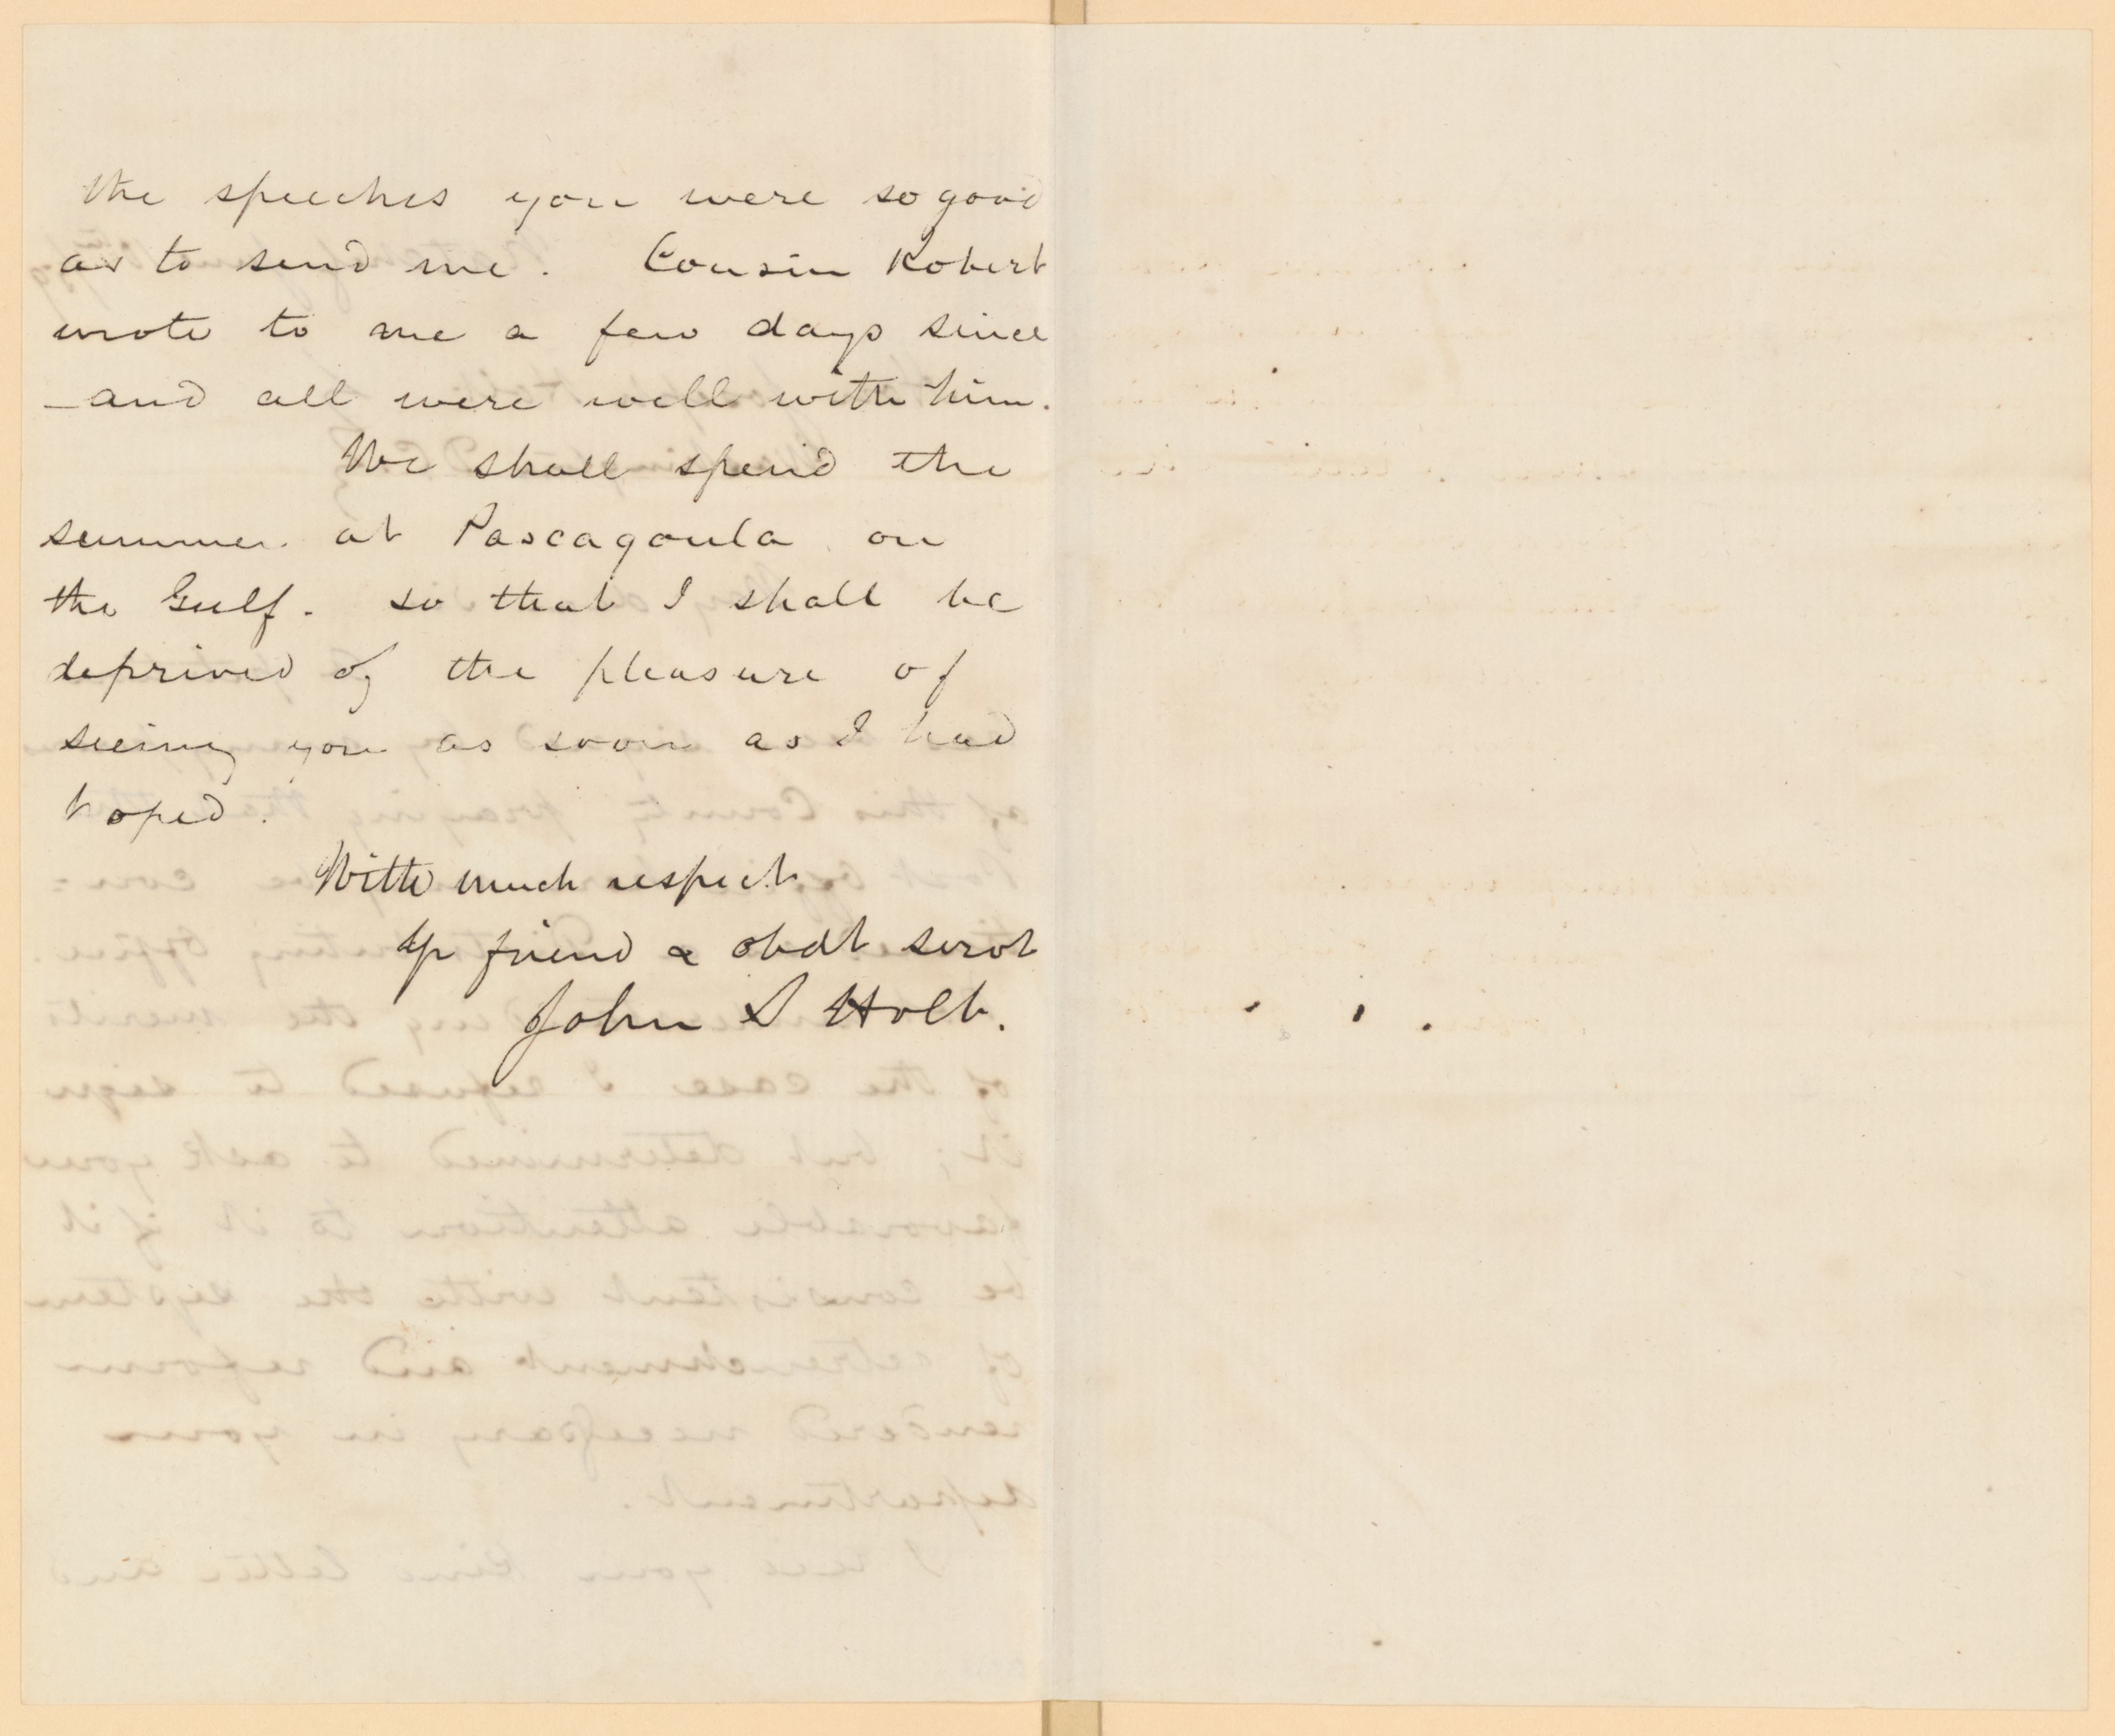 the speeches you were so good
as to send me. Cousin Robert
wrote to me a few days since
—and all were well with him.
We shall spend the
summer at Pascagoula on
the Gulf. so that I shall be
deprived of the pleasure of
seeing you as soon as I had
hoped.
With much respect
Yr friend & obdt servt
John S Holt.